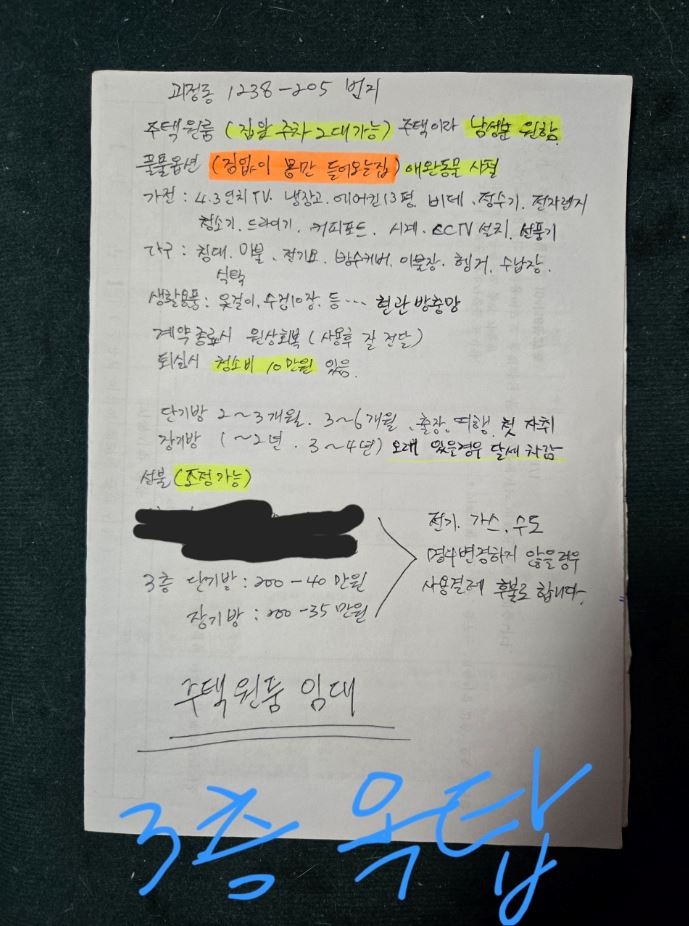 괴정동 1238-205 번지
주택원룸 (집앞 주차 2대가능) 주택이라 남성분 원함
풀풀옵션 (짐없이 몸만 들어오는집) 애완동물 사절
가전 : 43인치 TV. 냉장고. 에어컨13평. 비데. 정수기. 전자렌지
청소기. 드라이기. 커피포트. 시계. CCTV 설치. 선풍기
가구 : 침대. 이불. 전기요. 방수커버. 이불장. 헹거. 수납장.
식탁
생활용품 : 옷걸이. 수건10장. 등… 현관 방충망
계약종료시 원상회복 (사용후 잘 전달)
퇴실시 청소비 10만원 있음.
단기방 2~3개월. 3~6개월. 출장. 여행. 첫 자취
장기방 (~2년. 3~4년) 오래 있을경우 달세 차감
선불 (조정가능)
전기. 가스. 수도
명의변경하지 않을경우
3층 단기방 : 200-40만원
사용결제 후불로 합니다.
장기방 : 200-35만원
주택원룸 임대
3층 옥탑